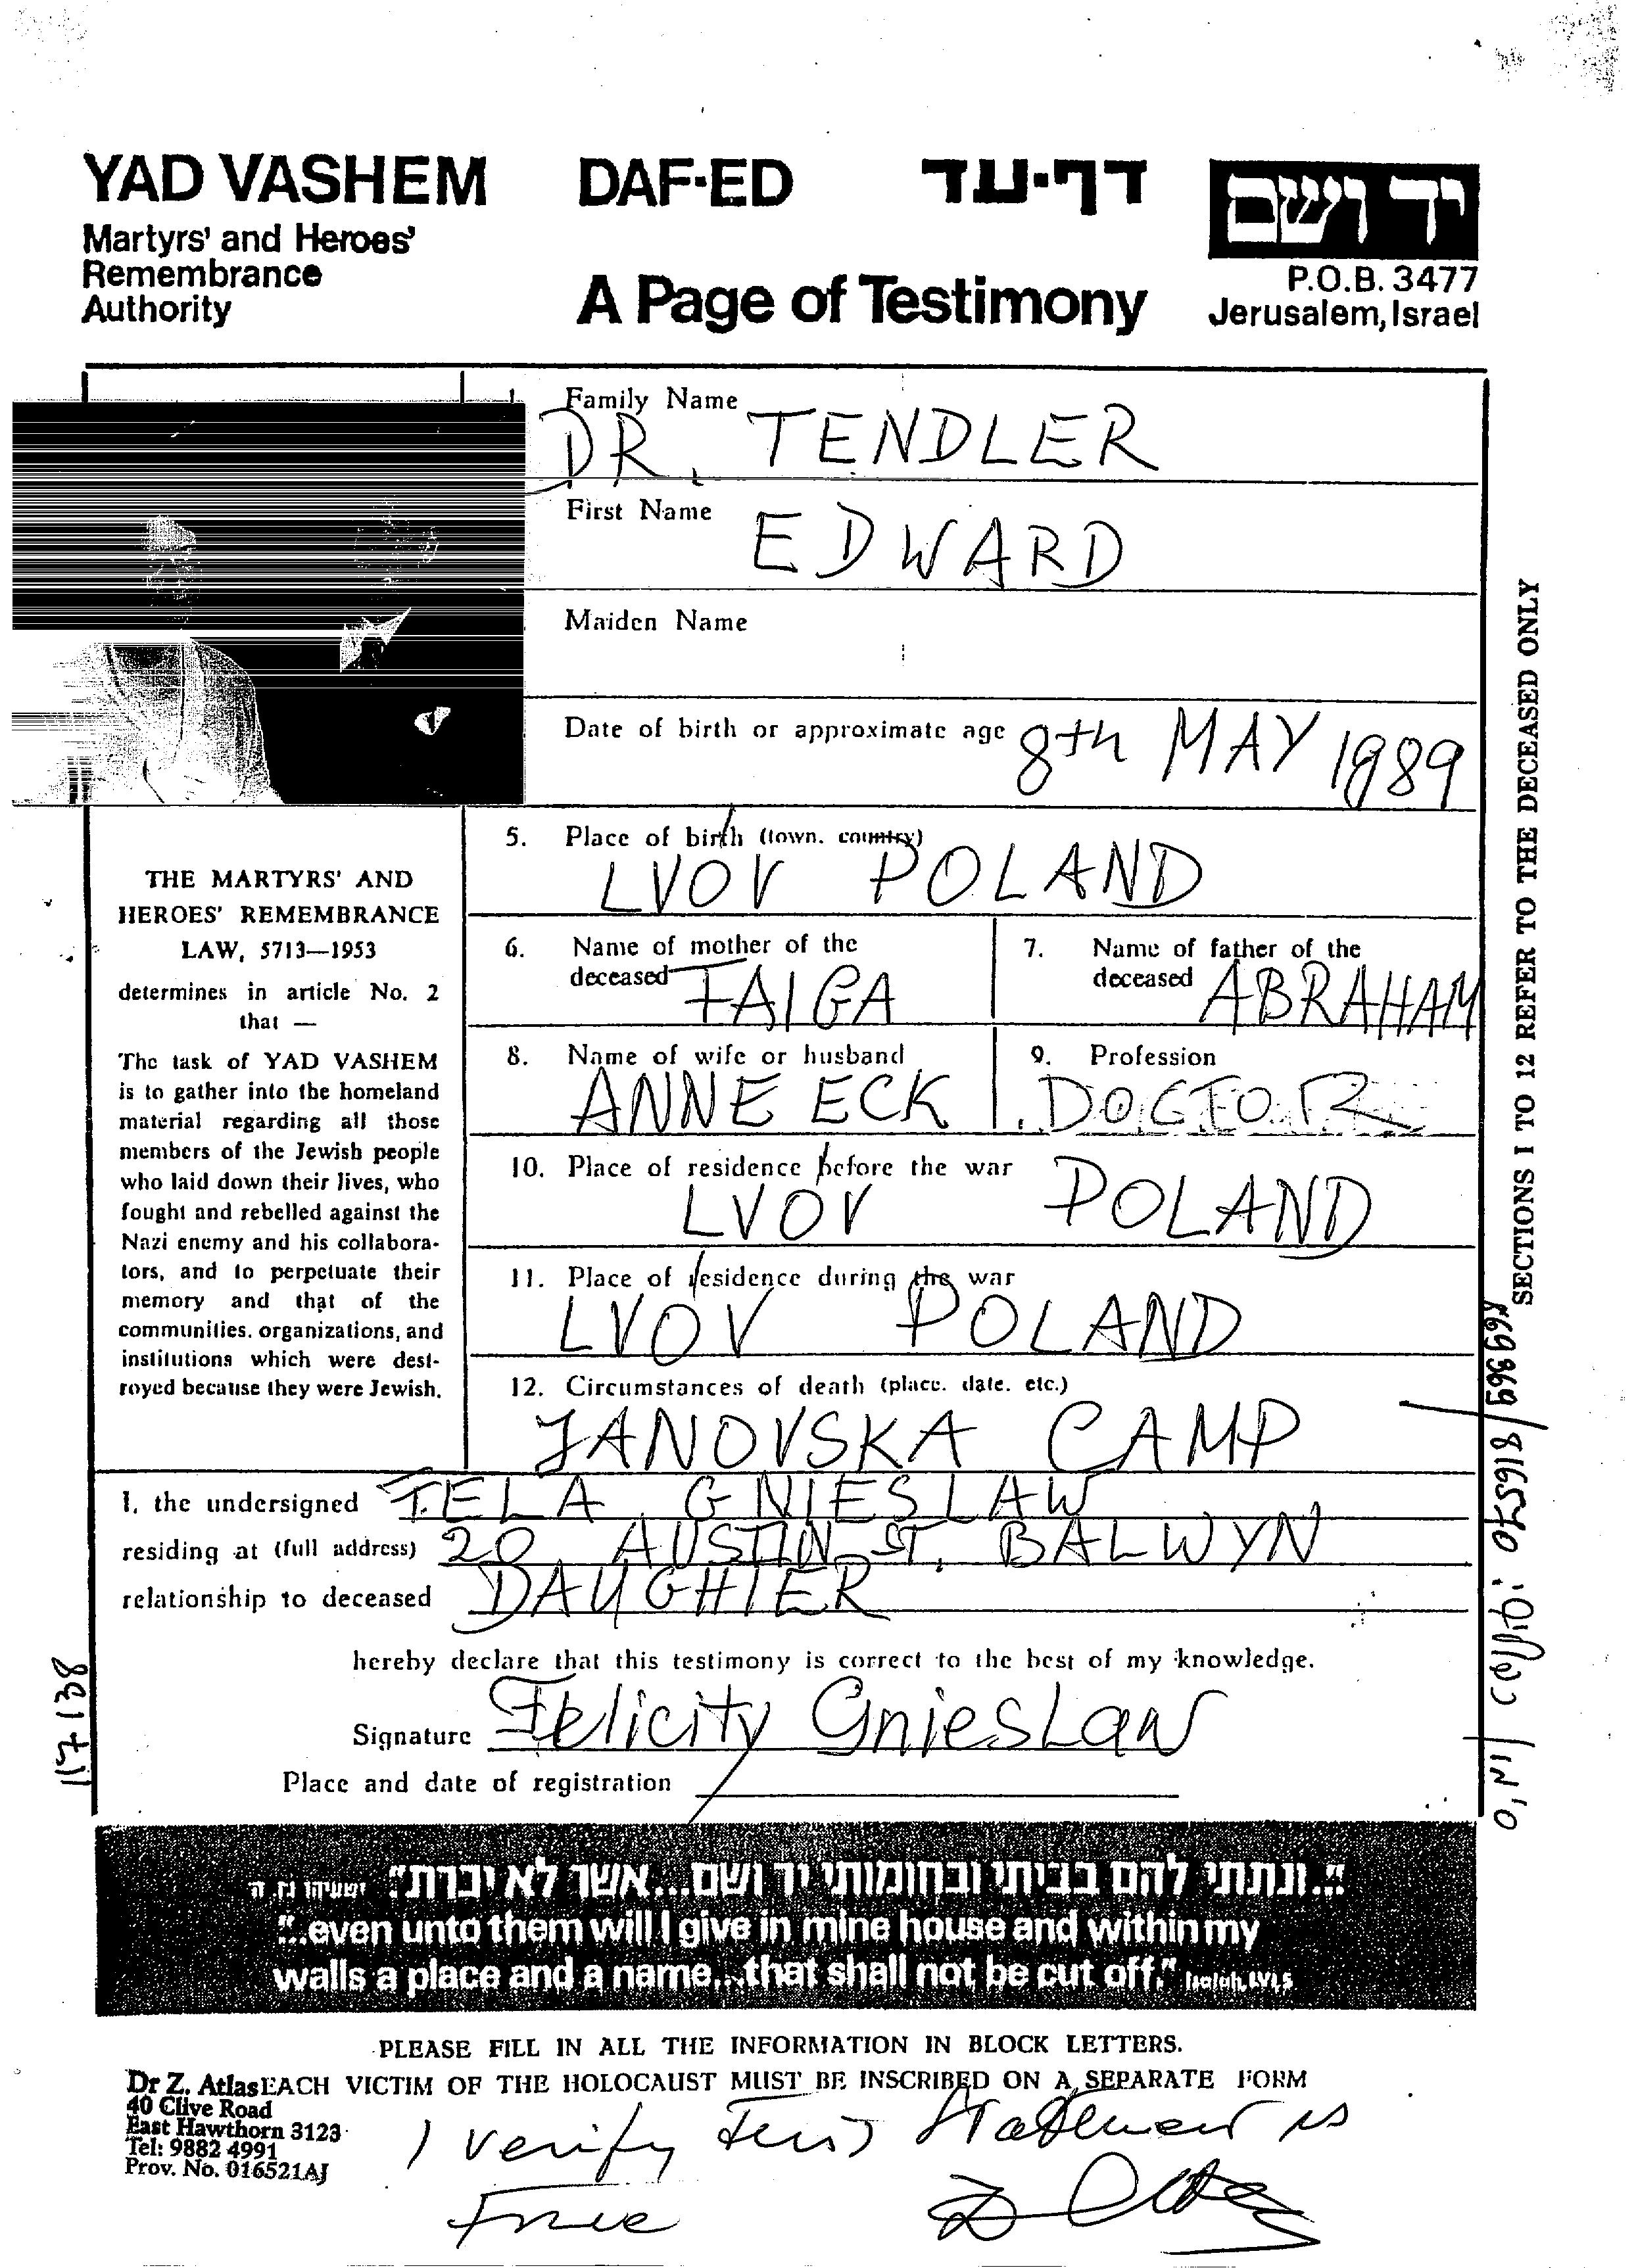 YAD VASHEM DAF-ED דף-עד יד ושם
Martyrs' and Heroes'
Remembrance
Authority
A Page of Testimony
P.O.B. 3477
Jerusalem, Israel
Family Name
DR. TENDLER
First Name
EDWARD
Maiden Name
Date of birth or approximate age 8th MAY 1989
5. Place of birth (town, country)
LVOV POLAND
6. Name of mother of the
deceased FAIGA
7. Name of father of the
deceased ABRAHAM
8. Name of wife or husband
ANNE ECK
9. Profession
DOCTOR
10. Place of residence before the war
LVOV POLAND
11. Place of residence during the war
LVOV POLAND
12. Circumstances of death (place, date, etc.)
JANOVSKA CAMP
THE MARTYRS' AND
HEROES' REMEMBRANCE
LAW, 5713—1953
determines in article No. 2
that —
The task of YAD VASHEM
is to gather into the homeland
material regarding all those
members of the Jewish people
who laid down their lives, who
fought and rebelled against the
Nazi enemy and his collabora-
tors, and to perpetuate their
memory and that of the
communities, organizations, and
institutions which were dest-
royed because they were Jewish.
SECTIONS 1 TO 12 REFER TO THE DECEASED ONLY
I, the undersigned FELA GNIESLAW
residing at (full address) 20 AUSTIN ST. BALWYN
relationship to deceased DAUGHTER
hereby declare that this testimony is correct to the best of my knowledge.
Signature Felicity GniesLaw
Place and date of registration
"...ונתתי להם בביתי ובחומותי יד ושם...אשר לא יכרת" ישעיהו נו ה
"...even unto them will I give in mine house and within my
walls a place and a name...that shall not be cut off." Isaiah, LVI, 5
PLEASE FILL IN ALL THE INFORMATION IN BLOCK LETTERS.
EACH VICTIM OF THE HOLOCAUST MUST BE INSCRIBED ON A SEPARATE FORM
Dr Z. Atlas
40 Clive Road
East Hawthorn 3123
Tel: 9882 4991
Prov. No. 016521AJ
I verify this statement is
True